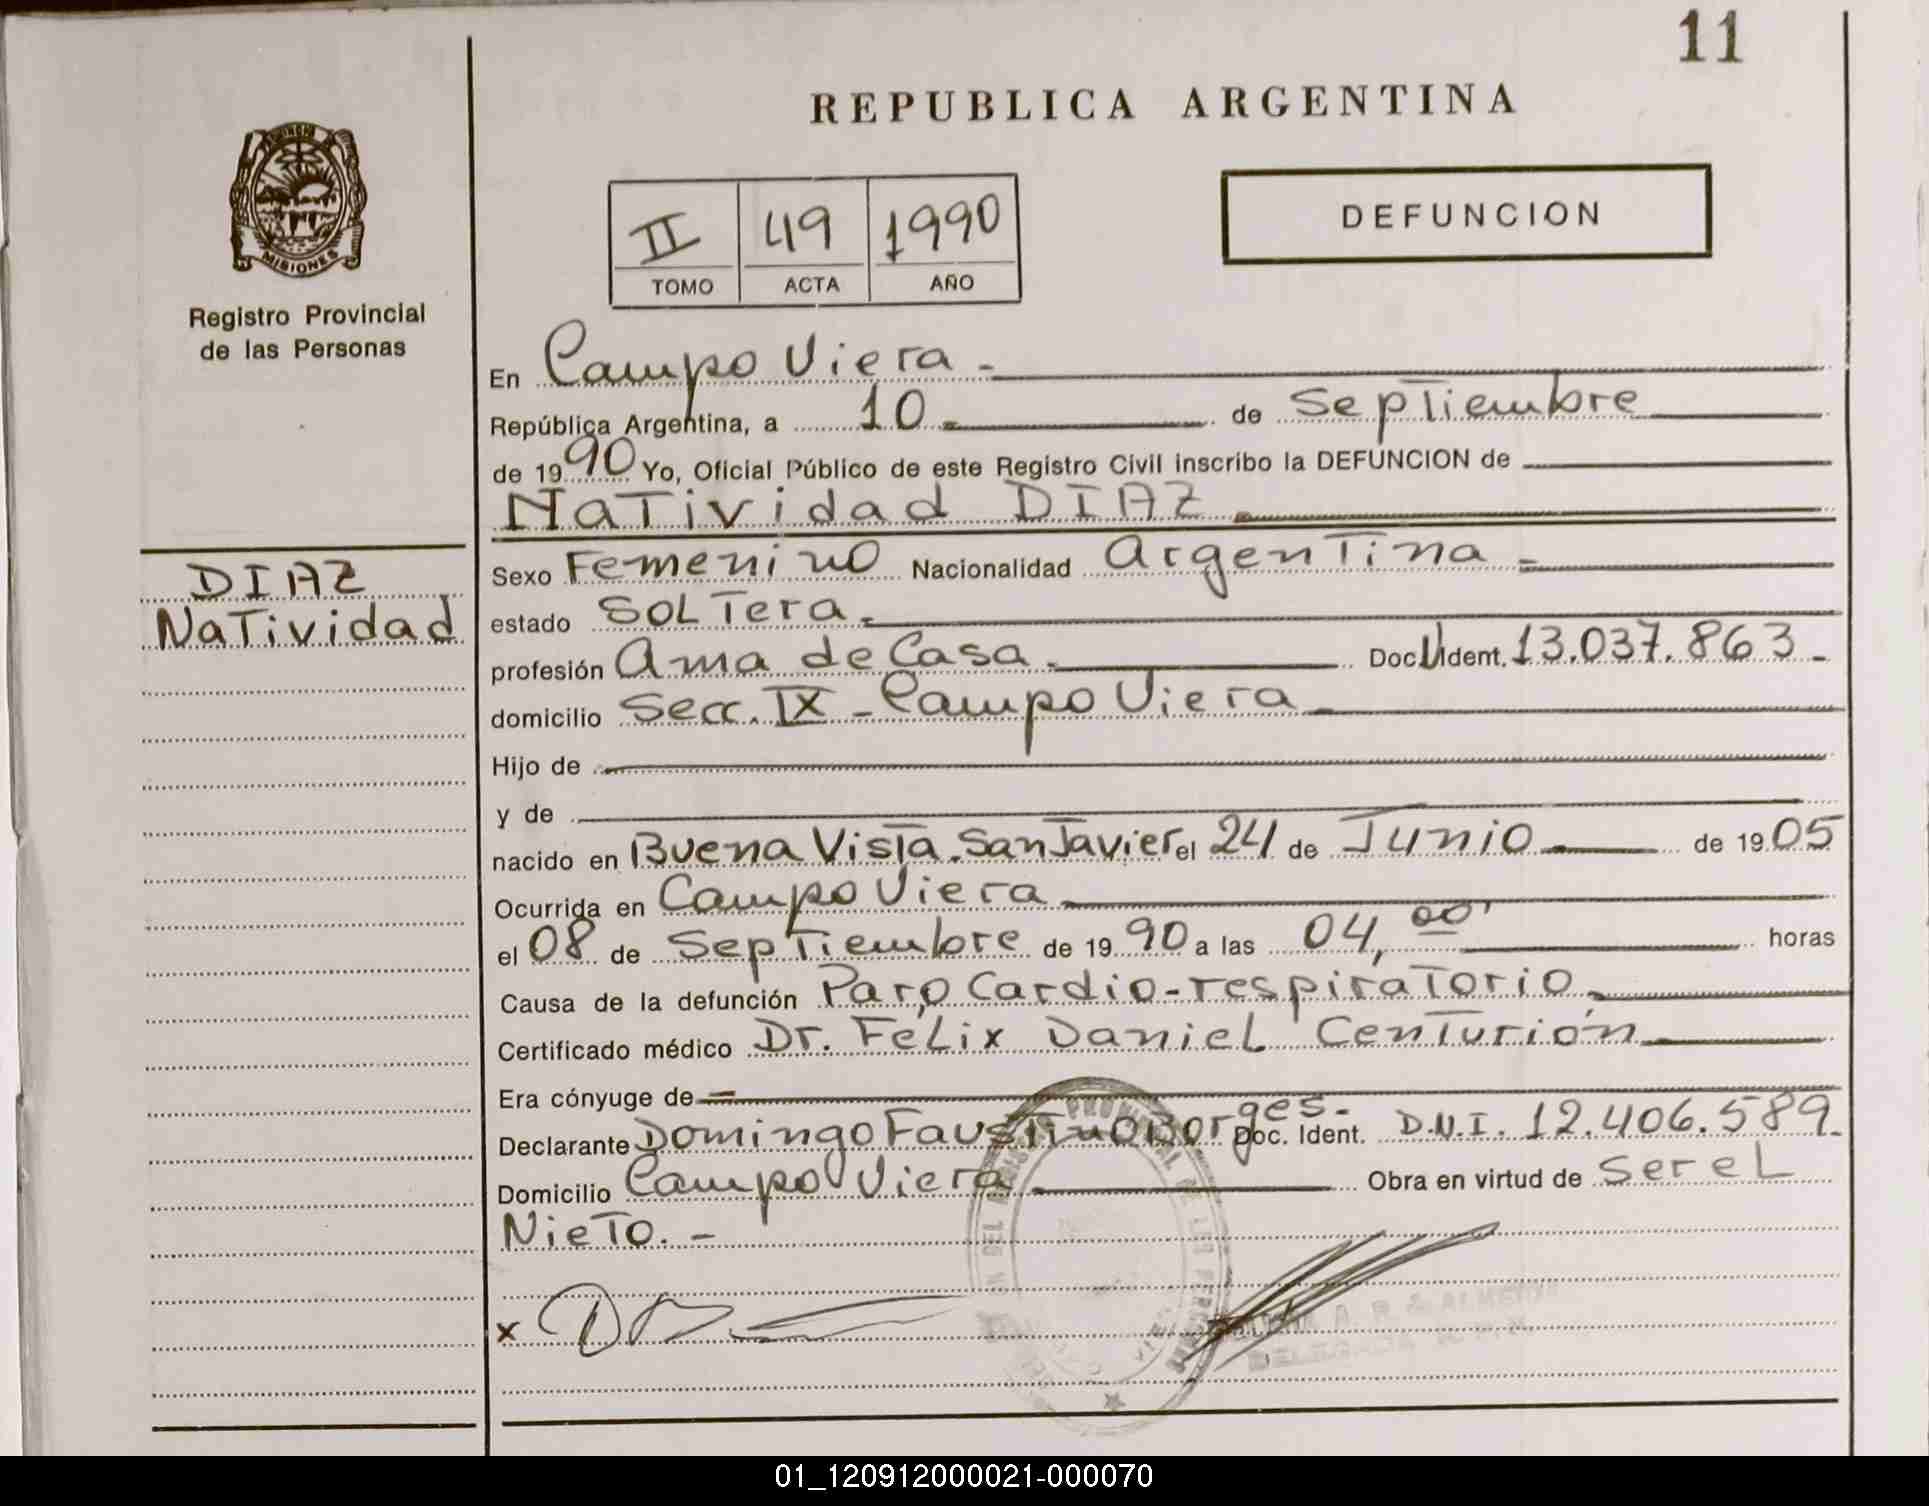 11
REPUBLICA ARGENTINA
MISIONES
Registro Provincial
de las Personas
II 49 1990
TOMO ACTA AÑO
DEFUNCION
DIAZ
NaTividad
En Campo Viera -
República Argentina, a 10 de SepTiembre
de 1990 Yo, Oficial Público de este Registro Civil inscribo la DEFUNCION de
NaTividad DIAZ
Sexo Femenino Nacionalidad ArgenTina -
estado SOLTera.
profesión Ama de Casa. Doc. Ident. 13.037.863 -
domicilio Secc. IX - Campo Viera
Hijo de
y de
nacido en Buena VisTa. San Javier el 24 de Junio de 1905
Ocurrida en Campo Viera
el 08 de SepTiembre de 1990 a las 04,00' horas
Causa de la defunción Paro Cardio-respiraTorio.
Certificado médico Dr. FeLix DanieL CenTurión
Era cónyuge de -
Declarante Domingo FausTino Borges.- Doc. Ident. D.N.I. 12.406.589.
Domicilio Campo Viera Obra en virtud de Ser eL
NieTo. -
x
01_120912000021-000070